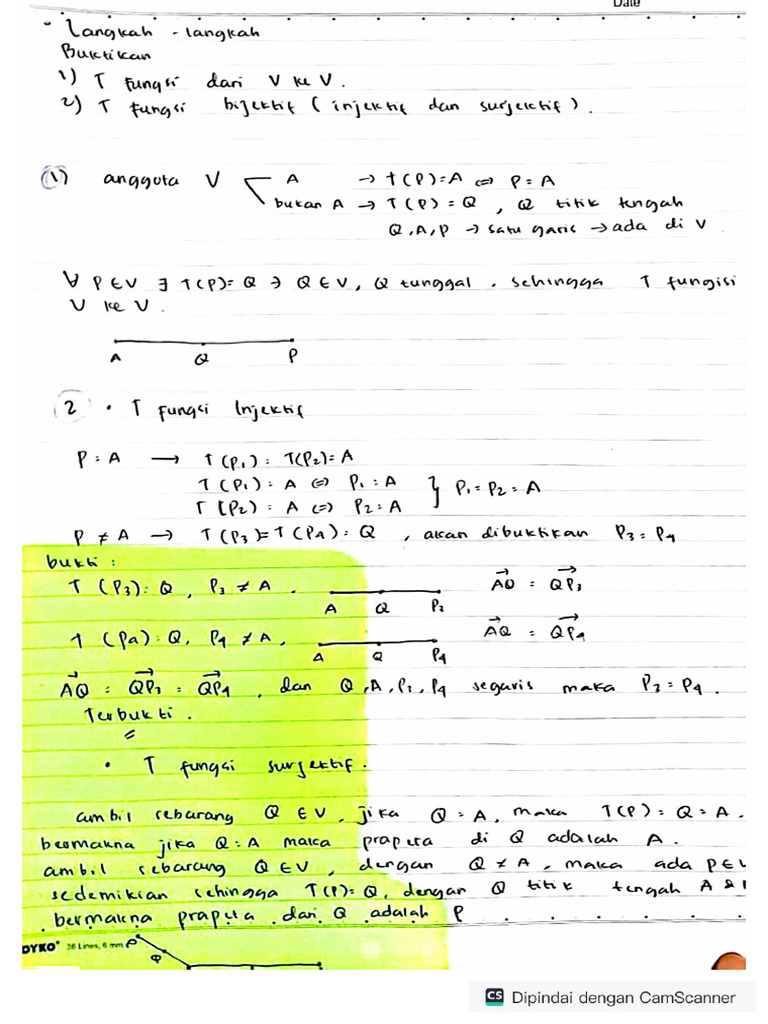 Date
- Langkah - langkah
Buktikan
1) T fungsi dari V ke V.
2) T fungsi bijektif (injektif dan surjektif).
(1) anggota V A → T(P)=A ⇔ P=A
bukan A → T(P) = Q , Q titik tengah
Q, A, P → satu garis → ada di V
∀ P∈V ∃ T(P)=Q ∋ Q∈V, Q tunggal. sehingga T fungisi
V ke V.
A Q P
2 • T fungsi Injektif
P = A → T(P₁) = T(P₂) = A
T(P₁) = A ⇔ P₁ = A } P₁ = P₂ = A
T(P₂) = A ⇔ P₂ = A
P ≠ A → T(P₃) = T(P₄) = Q , akan dibuktikan P₃ = P₄
bukti :
T (P₃) = Q , P₃ ≠ A . A Q P₃ AQ = QP₃
T (P₄) = Q, P₄ ≠ A, A Q P₄ AQ = QP₄
AQ = QP₃ = QP₄ , dan Q, A, P₃, P₄ segaris maka P₃ = P₄.
Terbukti.
• T fungsi surjektif.
ambil sebarang Q ∈ V, jika Q = A, maka T(P) = Q = A.
bermakna jika Q = A maka prapeta di Q adalah A.
ambil sebarang Q ∈ V, dengan Q ≠ A, maka ada P ∈ V
sedemikian sehingga T(P) = Q, dengan Q titik tengah A &
bermakna prapeta dari Q adalah P
DYKO® 36 Lines, 6 mm P
Q
CS Dipindai dengan CamScanner